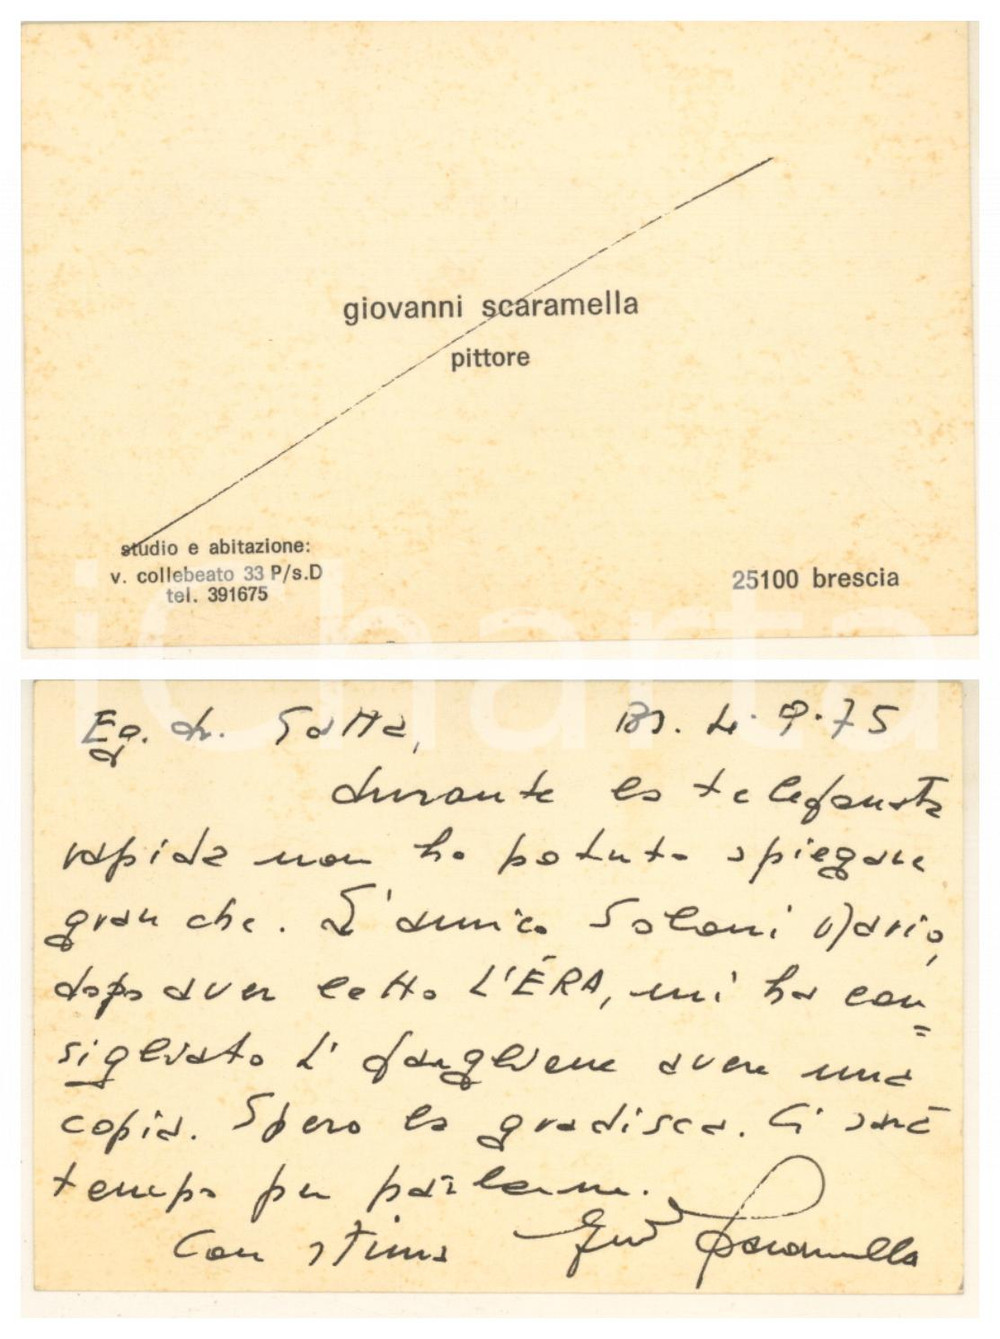 giovanni scaramella
pittore
studio e abitazione:
v. collebeato 33 P/s.D
tel. 391675
25100 brescia
iCharta
Eg. dr. Gatta, Bs. 4.9.75
durante la telefonata
rapida non ho potuto spiegare
gran che. L'amico Soloni Mario,
dopo aver letto L'ÉRA, mi ha con=
sigliato di fargliene avere una
copia. Spero la gradisca. Ci sarà
tempo per parlarne.
Con stima Scaramella